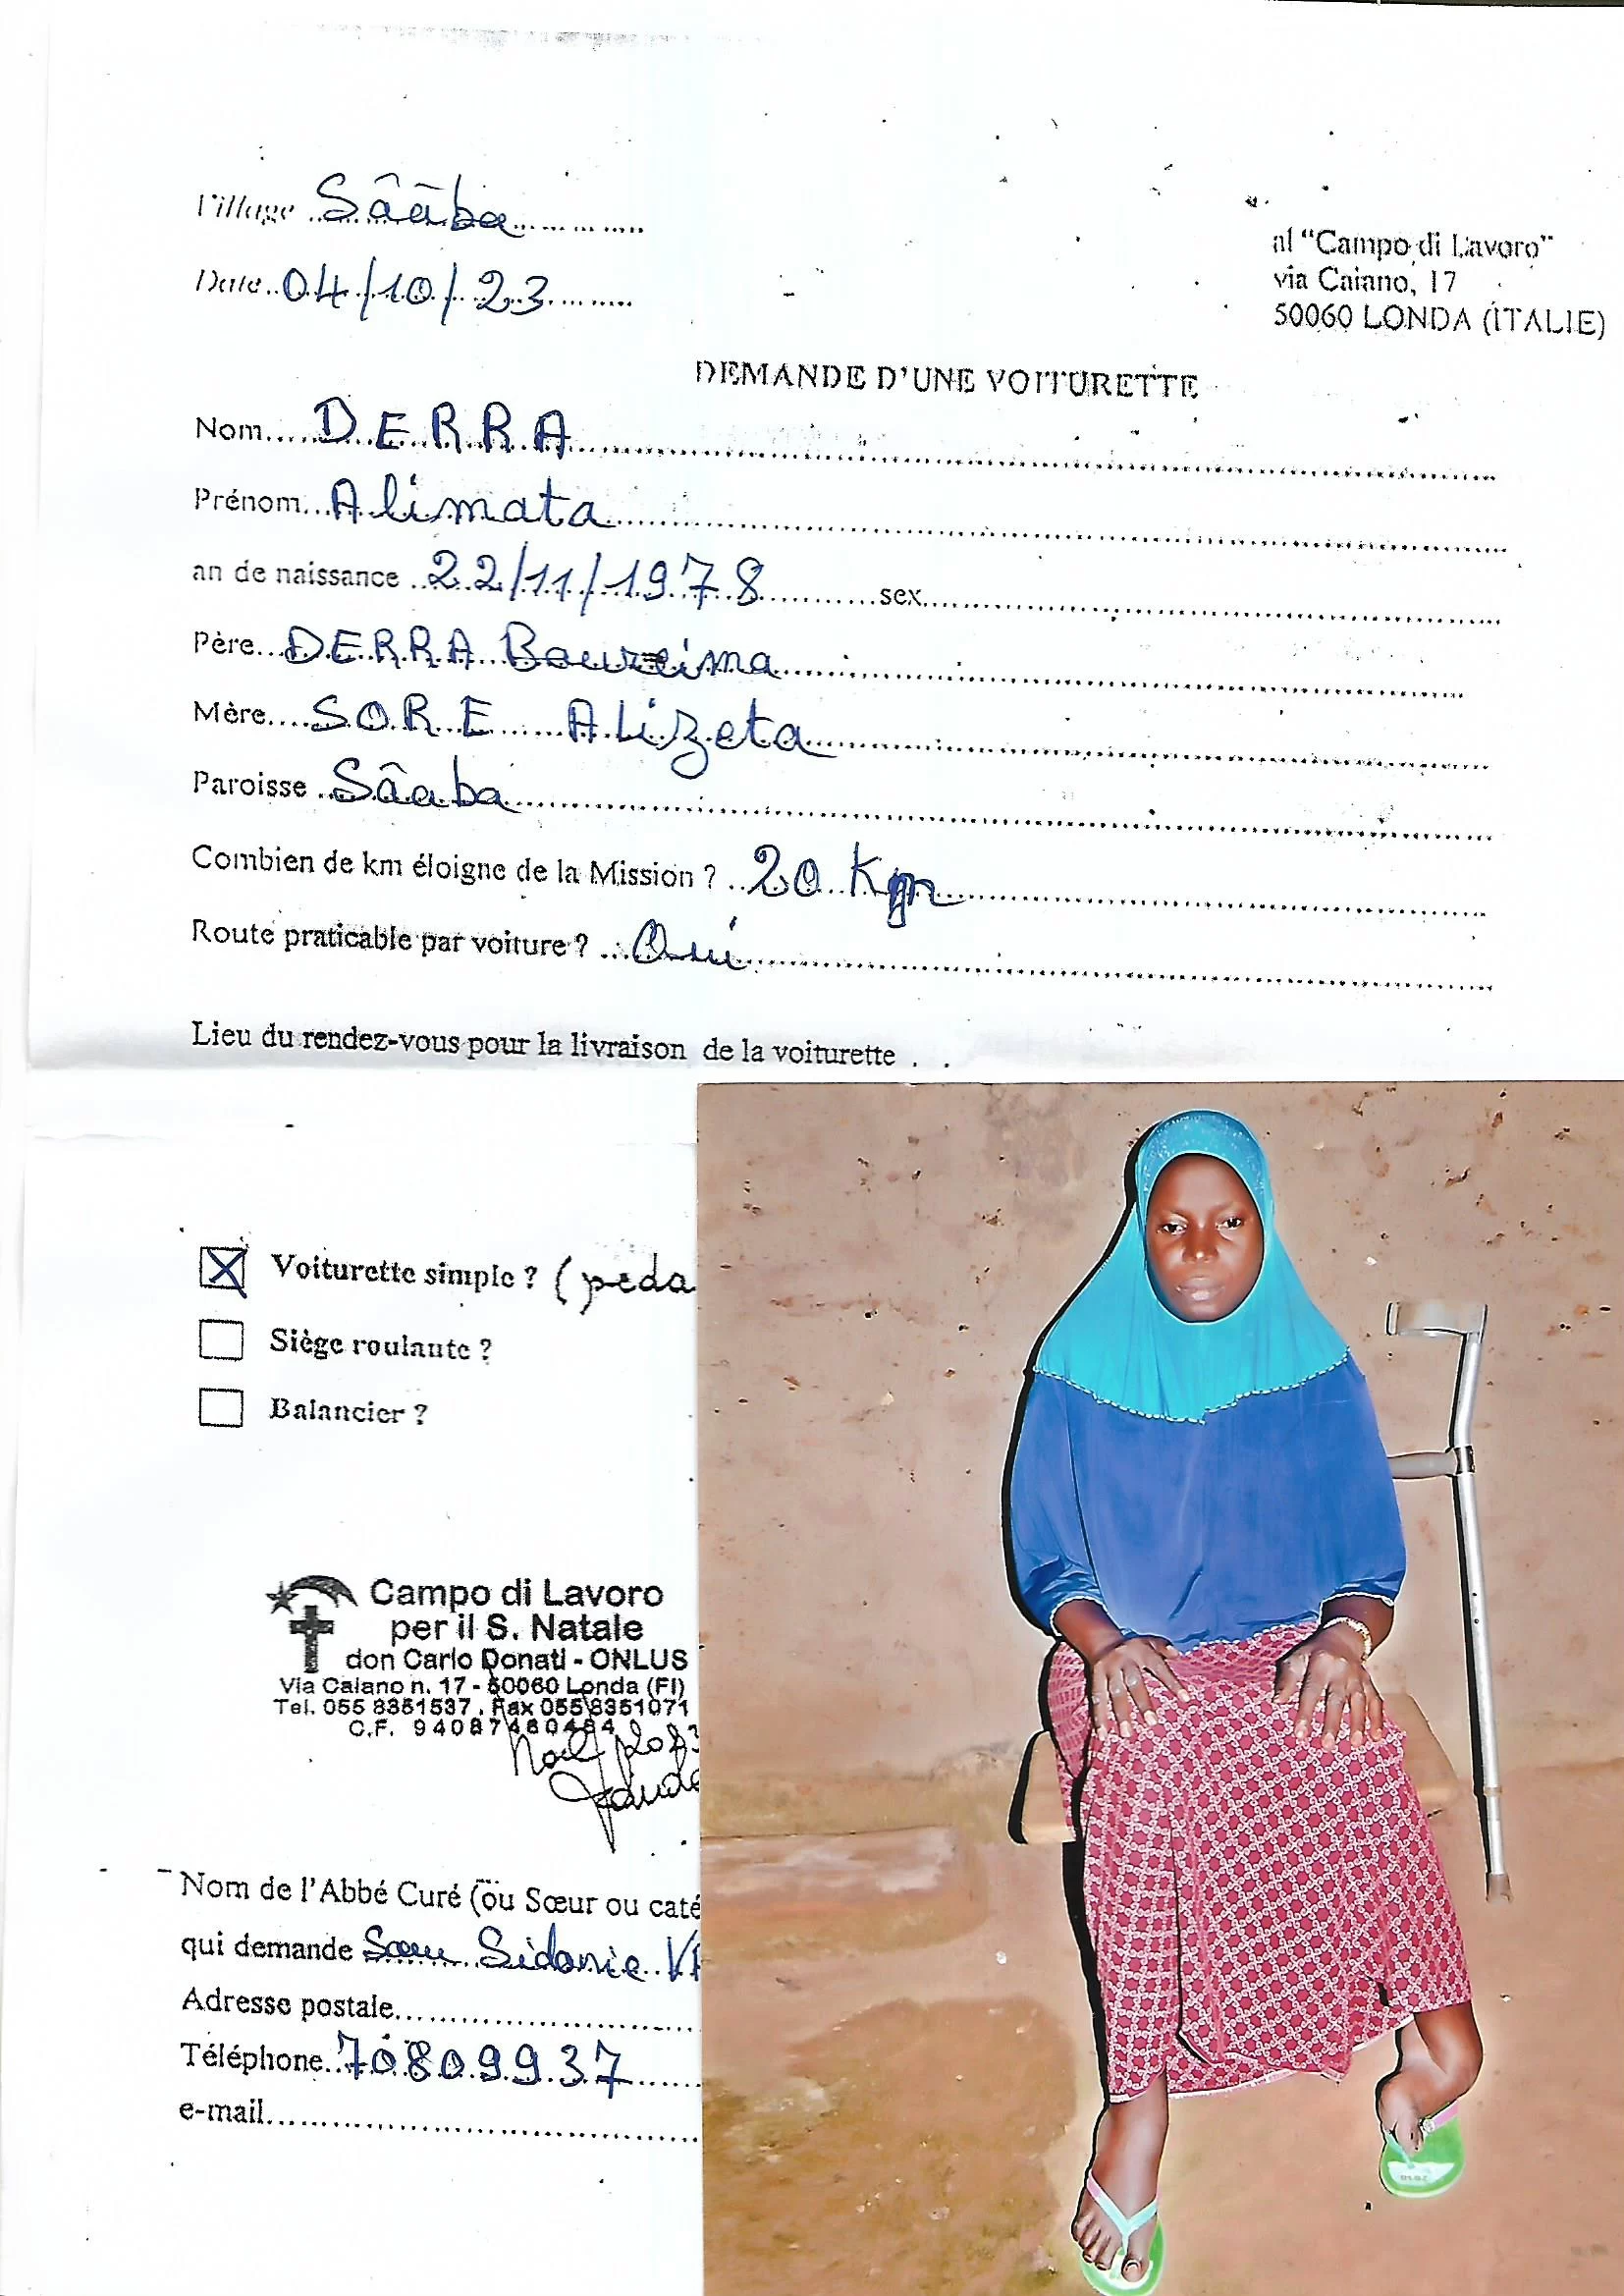 Village Sââba
Date 04/10/23
al "Campo di Lavoro"
via Caiano, 17
50060 LONDA (ITALIE)
DEMANDE D'UNE VOITURETTE
Nom DERRA
Prénom Alimata
an de naissance 22/11/1978 sex
Père DERRA Boureima
Mère SORE Alizeta
Paroisse Sâaba
Combien de km éloigne de la Mission ? 20 Km
Route praticable par voiture ? Oui
Lieu du rendez-vous pour la livraison de la voiturette . .
Voiturette simple ? (peda
Siège roulante ?
Balancier ?
Campo di Lavoro
per il S. Natale
don Carlo Donati - ONLUS
Via Caiano n. 17 - 50060 Londa (FI)
Tel. 055 8351537 . Fax 055 8351071
C.F. 94087460484
Nom de l'Abbé Curé (ou Sœur ou caté
qui demande Sœur Sidonie
Adresse postale
Téléphone 70809937
e-mail